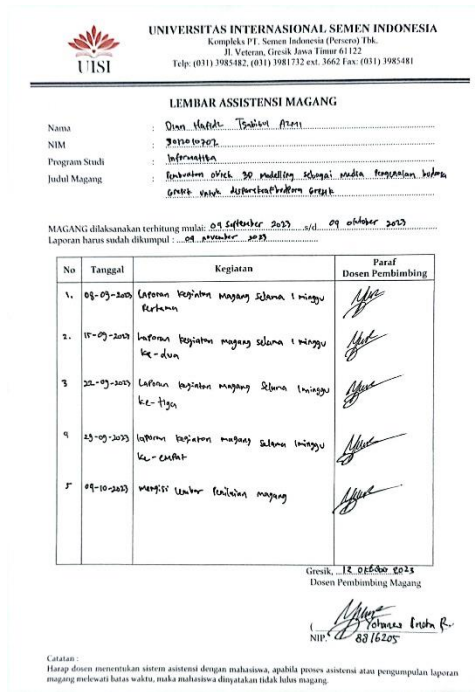 UISI
UNIVERSITAS INTERNASIONAL SEMEN INDONESIA
Kompleks PT. Semen Indonesia (Persero) Tbk.
Jl. Veteran, Gresik Jawa Timur 61122
Telp: (031) 3985482, (031) 3981732 ext. 3662 Fax: (031) 3985481
LEMBAR ASSISTENSI MAGANG
Nama : Dian Hafidz Tsabitul Azmi
NIM :
Program Studi : Informatika
Judul Magang : Pembuatan objek 3D modelling sebagai media Pengenalan budaya
Gresik untuk disparekrafbudpora Gresik
MAGANG dilaksanakan terhitung mulai: 09 September 2023 s/d 09 oktober 2023
Laporan harus sudah dikumpul : 09 november 2023
No Tanggal Kegiatan Paraf
Dosen Pembimbing
1. 08-09-2023 Laporan kegiatan magang selama 1 minggu
Pertama
2. 15-09-2023 Laporan kegiatan magang selama 1 minggu
ke-dua
3 22-09-2023 Laporan kegiatan magang selama 1 minggu
ke-tiga
4 29-09-2023 laporan kegiatan magang selama 1 minggu
ke-empat
5 09-10-2023 Mengisi lembar Penilaian magang
Gresik, 12 Oktober 2023
Dosen Pembimbing Magang
( Yohanes
NIP. 8816205
Catatan :
Harap dosen menentukan sistem asistensi dengan mahasiswa, apabila proses asistensi atau pengumpulan laporan
magang melewati batas waktu, maka mahasiswa dinyatakan tidak lulus magang.